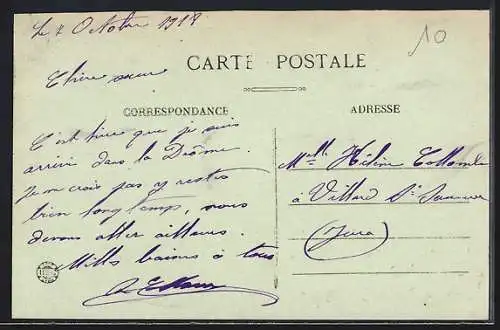 Le 7 Octobre 1918
10
CARTE POSTALE
Chère sœur
CORRESPONDANCE
ADRESSE
C'est hier que je suis
arrivé dans la Drôme.
Je ne crois pas y rester
bien longtemps, nous
devons aller ailleurs.
Mills baisers à tous
Melle Hélène
à Villard St Sauveur
(Jura)